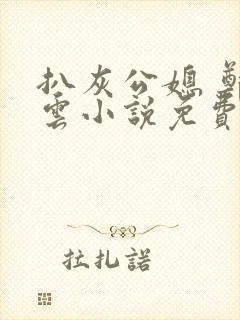 扒灰公媳
雲小說免費
拉扎諾